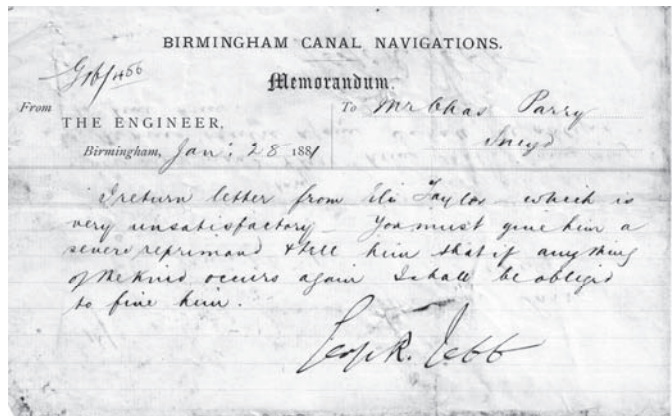 BIRMINGHAM CANAL NAVIGATIONS.
Memorandum.
From
To Mr Chas Parry
THE ENGINEER,
Sneyd
Birmingham, Jan: 28 1881
I return letter from Eli Taylor which is
very unsatisfactory – You must give him a
severe reprimand & tell him that if anything
of the kind occurs again I shall be obliged
to fine him.
Geo. R. Jebb